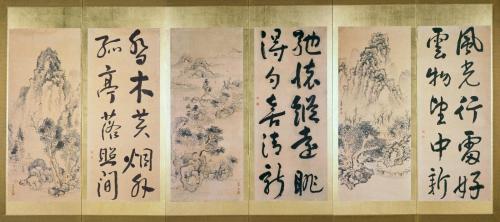 風光行處好
雲物望中新
馳懷縱遠眺
得句喜清新
喬木烟外
孤亭落照間